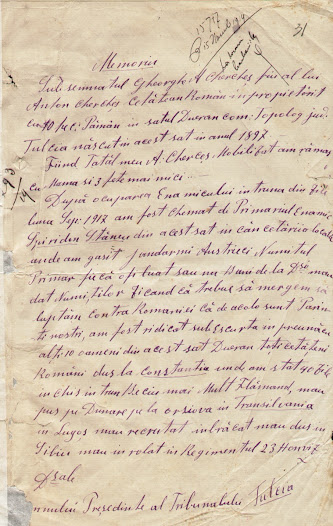 31
1577
Memoriu
Sub semnatul Gheorghe A Cherches fiu al lui
Anton Cherches Cetăţean Român impropietărit
cu 10 heć. Pămăn in satul Daeran com: Topolog jud:
Tulcia născut in acest sat in anul 1897
Fiind Tatăl meu A: Cherces Mobilizat am rămas
cu Mama si 3 fete mai mici
După ocuparea Enamicului in truna din zile
luna Sep: 1917 am fost chemat de Primarul Enamic
Spiridon Stănciu din acest sat in căncelăria locală
unde am găsit jandarmi Austrieci Numitul
Primar
dat Numiţilor zicănd că trebue să mergem să
luptăm contra Romăniei că de acolo sunt Parin
te nostri, am fost ridicat sub escurtă in preună cu
alti 10 oameni din acest sat Daeran toti cetăteni
Romăni dus la constantia unde am stat 40 zile
inclus in trun Beciu mai Mult Flămănd, mau
pus pe Dunare pe la orsiova in Transilvania
in Lugoj mau recrutat inbrăcat mau dus in
Sibiu mau inrolat in Regimentul 23 Honvez
Dsale
Domnului Preşedinte al Tribunalului Tulcia